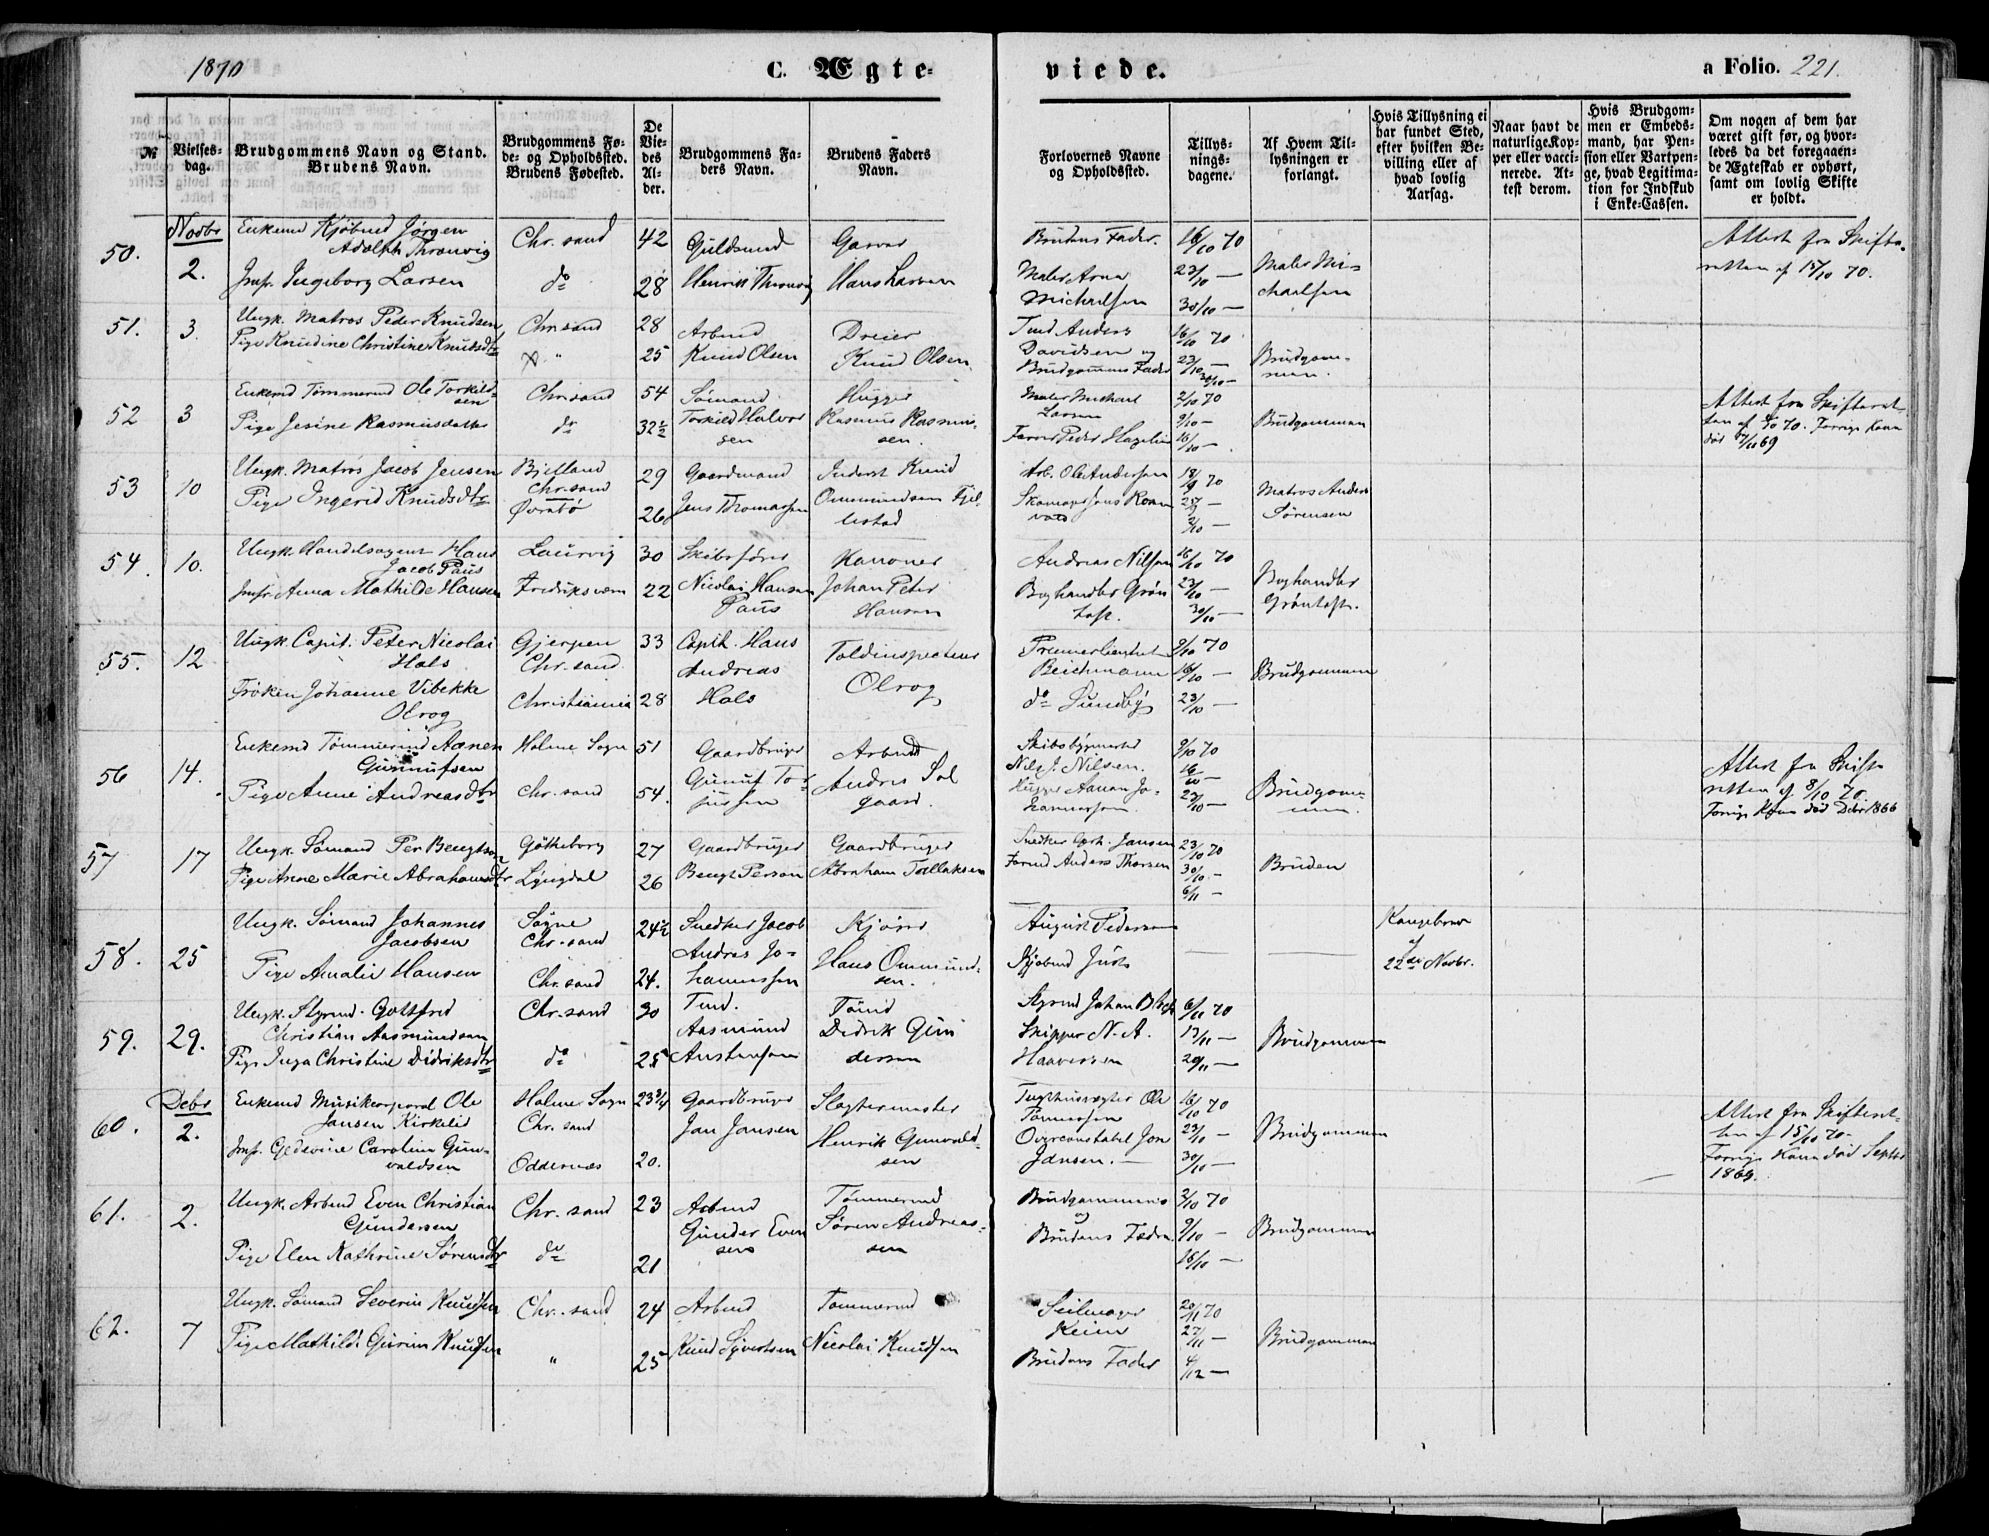 1870
C. Ægte-
viede.
a Folio. 221.
№
Vielses-
dag.
Brudgommens Navn og Stand.
Brudens Navn.
Brudgommens Fø-
de- og Opholdssted.
Brudens Fødested.
De
Vie-
des
Al-
der.
Brudgommens Fa-
ders Navn.
Brudens Faders
Navn.
Forlovernes Navne
og Opholdssted.
Tillys-
nings-
dagene.
Af Hvem Til-
lysningen er
forlangt.
Hvis Tillysning ei
har fundet Sted,
efter hvilken Be-
villing eller af
hvad lovlig
Aarsag.
Naar havt de
naturlige Kop-
per eller vacci-
nerede. At-
test derom.
Hvis Brudgom-
men er Embeds-
mand, har Pen-
sion eller Vartpen-
ge, hvad Legitima-
tion for Indskud
i Enke-Cassen.
Om nogen af dem har
været gift før, og hvor-
ledes da det foregaaen-
de Ægteskab er ophørt,
samt om lovlig Skifte
er holdt.
50.
Novbr
2.
Enkemd Kjøbmd Jørgen
Adolph Thronvig
Jmfr. Ingeborg Larsen
Chr. sand
do
42
28
Guldsmed
Henrik Thronvig
Garver
Hans Larsen
Brudens Fader.
Maler Arne
Michaelsen
16/10 70
23/10 —
30/10 —
Maler Mi-
chaelsen
Attest fra Skifte-
retten af 15/10 70.
51.
3.
Ungk. Matros Peder Knudsen
Pige Knudine Christine Knudsdtr
Chr. sand
"
28
25
Arbmd
Knud Olsen
Dreier
Knud Olsen
Tmd Anders
Davidsen og
Brudgommens Fader
16/10 70
23/10 —
30/10 —
Brudgom-
men.
52
3
Enkemd Tømmermd Ole Torkild-
sen
Pige Jesine Rasmusdatter
Chr. sand
do
54
32½
Sømand
Torkild Halvor
sen
Hugger
Rasmus Rasmus-
sen.
Maler Michael
Larsen
Farver Peder Hagelin
2/10 70
9/10 —
16/10 —
Brudgommen
Attest fra Skifteret-
ten af 4/10 70. Forrige Kone
død 4/11 69
53
10
Ungk. Matros Jacob Jensen
Pige Ingerid Knudsdtr
Bjelland
Chr. sand
Øvrebø
29
26
Gaardmand
Jens Thomassen
Inderst Knud
Ommundsen Fjel-
lestad
Arb. Ole Andersen
18/9 70
25/9 —
2/10 —
Matros Anders
Sørensen
54.
10.
Ungk. Handelsagent Hans
Jacob Paus
Jmfr. Anna Mathilde Hansen
Laurvig
Fredriksværn
30
22
Skibsfører
Nicolai Hansen
Paus
Kanoner
Johan Peter
Hansen
Andreas Nilsen
Boghandler Grøn
toft.
16/10 70
23/10 —
30/10 —
Boghandler
Grøntoft.
55.
12
Ungk. Capit. Peter Nicolai
Hals
Frøken Johanne Vibekke
Olrog
Gjerpen
Chr. sand.
Christiania
33
28
Capit. Hans
Andreas
Hals
Toldinspecteur
Olrog
Premierlieutnt
Beichmann
do Sundby
9/10 70
16/10 —
23/10 —
Brudgommen
56
14.
Enkemd Tømmermd Aanen
Gunnufsen
Pige Anne Andreasdtr
Holme Sogn
Chr. sand
51
54.
Gaardbruger
Gunuf Tor
jussen
Arbmd
Andres Sol
gaard.
Skibsbygmester
Nils J. Nilsen.
Hugger Aanen Jo-
hannessen.
9/10 70
16/10 —
23/10 —
Brudgom-
men
Attest fra Skifte
retten af 8/10 70.
Forrige Kone død Debr 1866
57
17
Ungk. Sømand Per Bengtson
Pige Anne Marie Abrahamsdtr
Götheborg
Lyngdal
27
26
Gaardbruger
Bengt Person
Gaardbruger
Abraham Tallaksen
Snedker Chrh. Jansen
Farmd Anders Thorsen
23/10 70
30/10 —
6/11 —
Bruden
58.
25
Ungk. Sømand Johannes
Jacobsen
Pige Amalie Hansen
Søgne
Chr. sand
Chr. sand
24½
24.
Snedker Jacob
Andreas Jo-
hannessen
Kjører
Hans Ommund-
sen.
August Pedersen
Kjøbmd Just
Kongebrev
af
22de Novbr.
59.
29.
Ungk. Styrmd. Gottfred
Christian Aasmundsen
Pige Inga Christine Didriksdtr
Chr. sand
do
30
25
Tmd.
Aasmund
Austensen
Tømd
Didrik Gun
dersen
Skipper N. A.
Haaversen
6/11 70
13/11 —
20/11 —
Brudgommen
60.
Debr
2.
Enkemd Musikcorporal Ole
Jansen Kirkelid
Jmfr. Gedevine Caroline Gun-
valdsen
Holme Sogn
Chr. sand
Oddernæs
23¾
20.
Gaardbruger
Jan Jansen
Slagtermester
Henrik Gunvald-
sen
Tugthusvægter Ole
Tønnessen
Overconstabel Jon
Jansen. —
16/10 70
23/10 —
30/10 —
Brudgommen
Attest fra Skifteret-
ten af 15/10 70-
Forrige Kone død Septbr
1869.
61.
2.
Ungk. Arbmd Even Christian
Gundersen
Pige Elen Kathrine Sørensdtr
Chr. sand
do
23
21
Arbmd
Gunder Even
sen
Tømmermd
Søren Andreas-
sen
Brudgommens
og
Brudens Fædre.
2/10 70
9/10 —
16/10 —
Brudgommen
62.
7
Ungk. Sømand Severin Knudsen
Pige Mathilde Gurine Knudsen
Chr. sand
"
24
25
Arbmd
Knud Syvertsen
Tømmermd
Nicolai Knudsen
Seilmager
Keim
Brudens Fader
20/11 70
27/11 —
4/12 —
Brudgommen